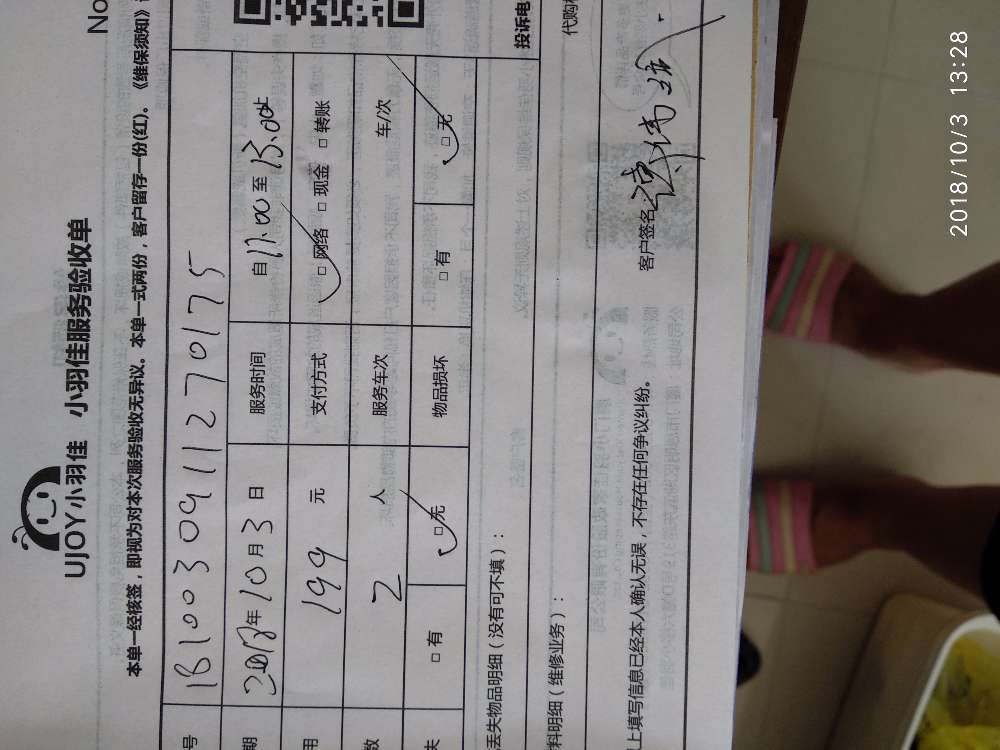 No
UJOY小羽佳 小羽佳服务验收单
本单一经核签，即视为对本次服务验收无异议。本单一式两份，客户留存一份(红)。《维保须知》
号 1810030911270175
期 2018年10月3日 服务时间 自11.00至13.00止
用 199 元 支付方式 □网络 □现金 □转账
数 2 人 服务车次 车/次
失 □有 □无 物品损坏 □有 □无
丢失物品明细（没有可不填）：
投诉电
料明细（维修业务）：
代购
上填写信息已经本人确认无误，不存在任何争议纠纷。
客户签名：
2018/10/3 13:28